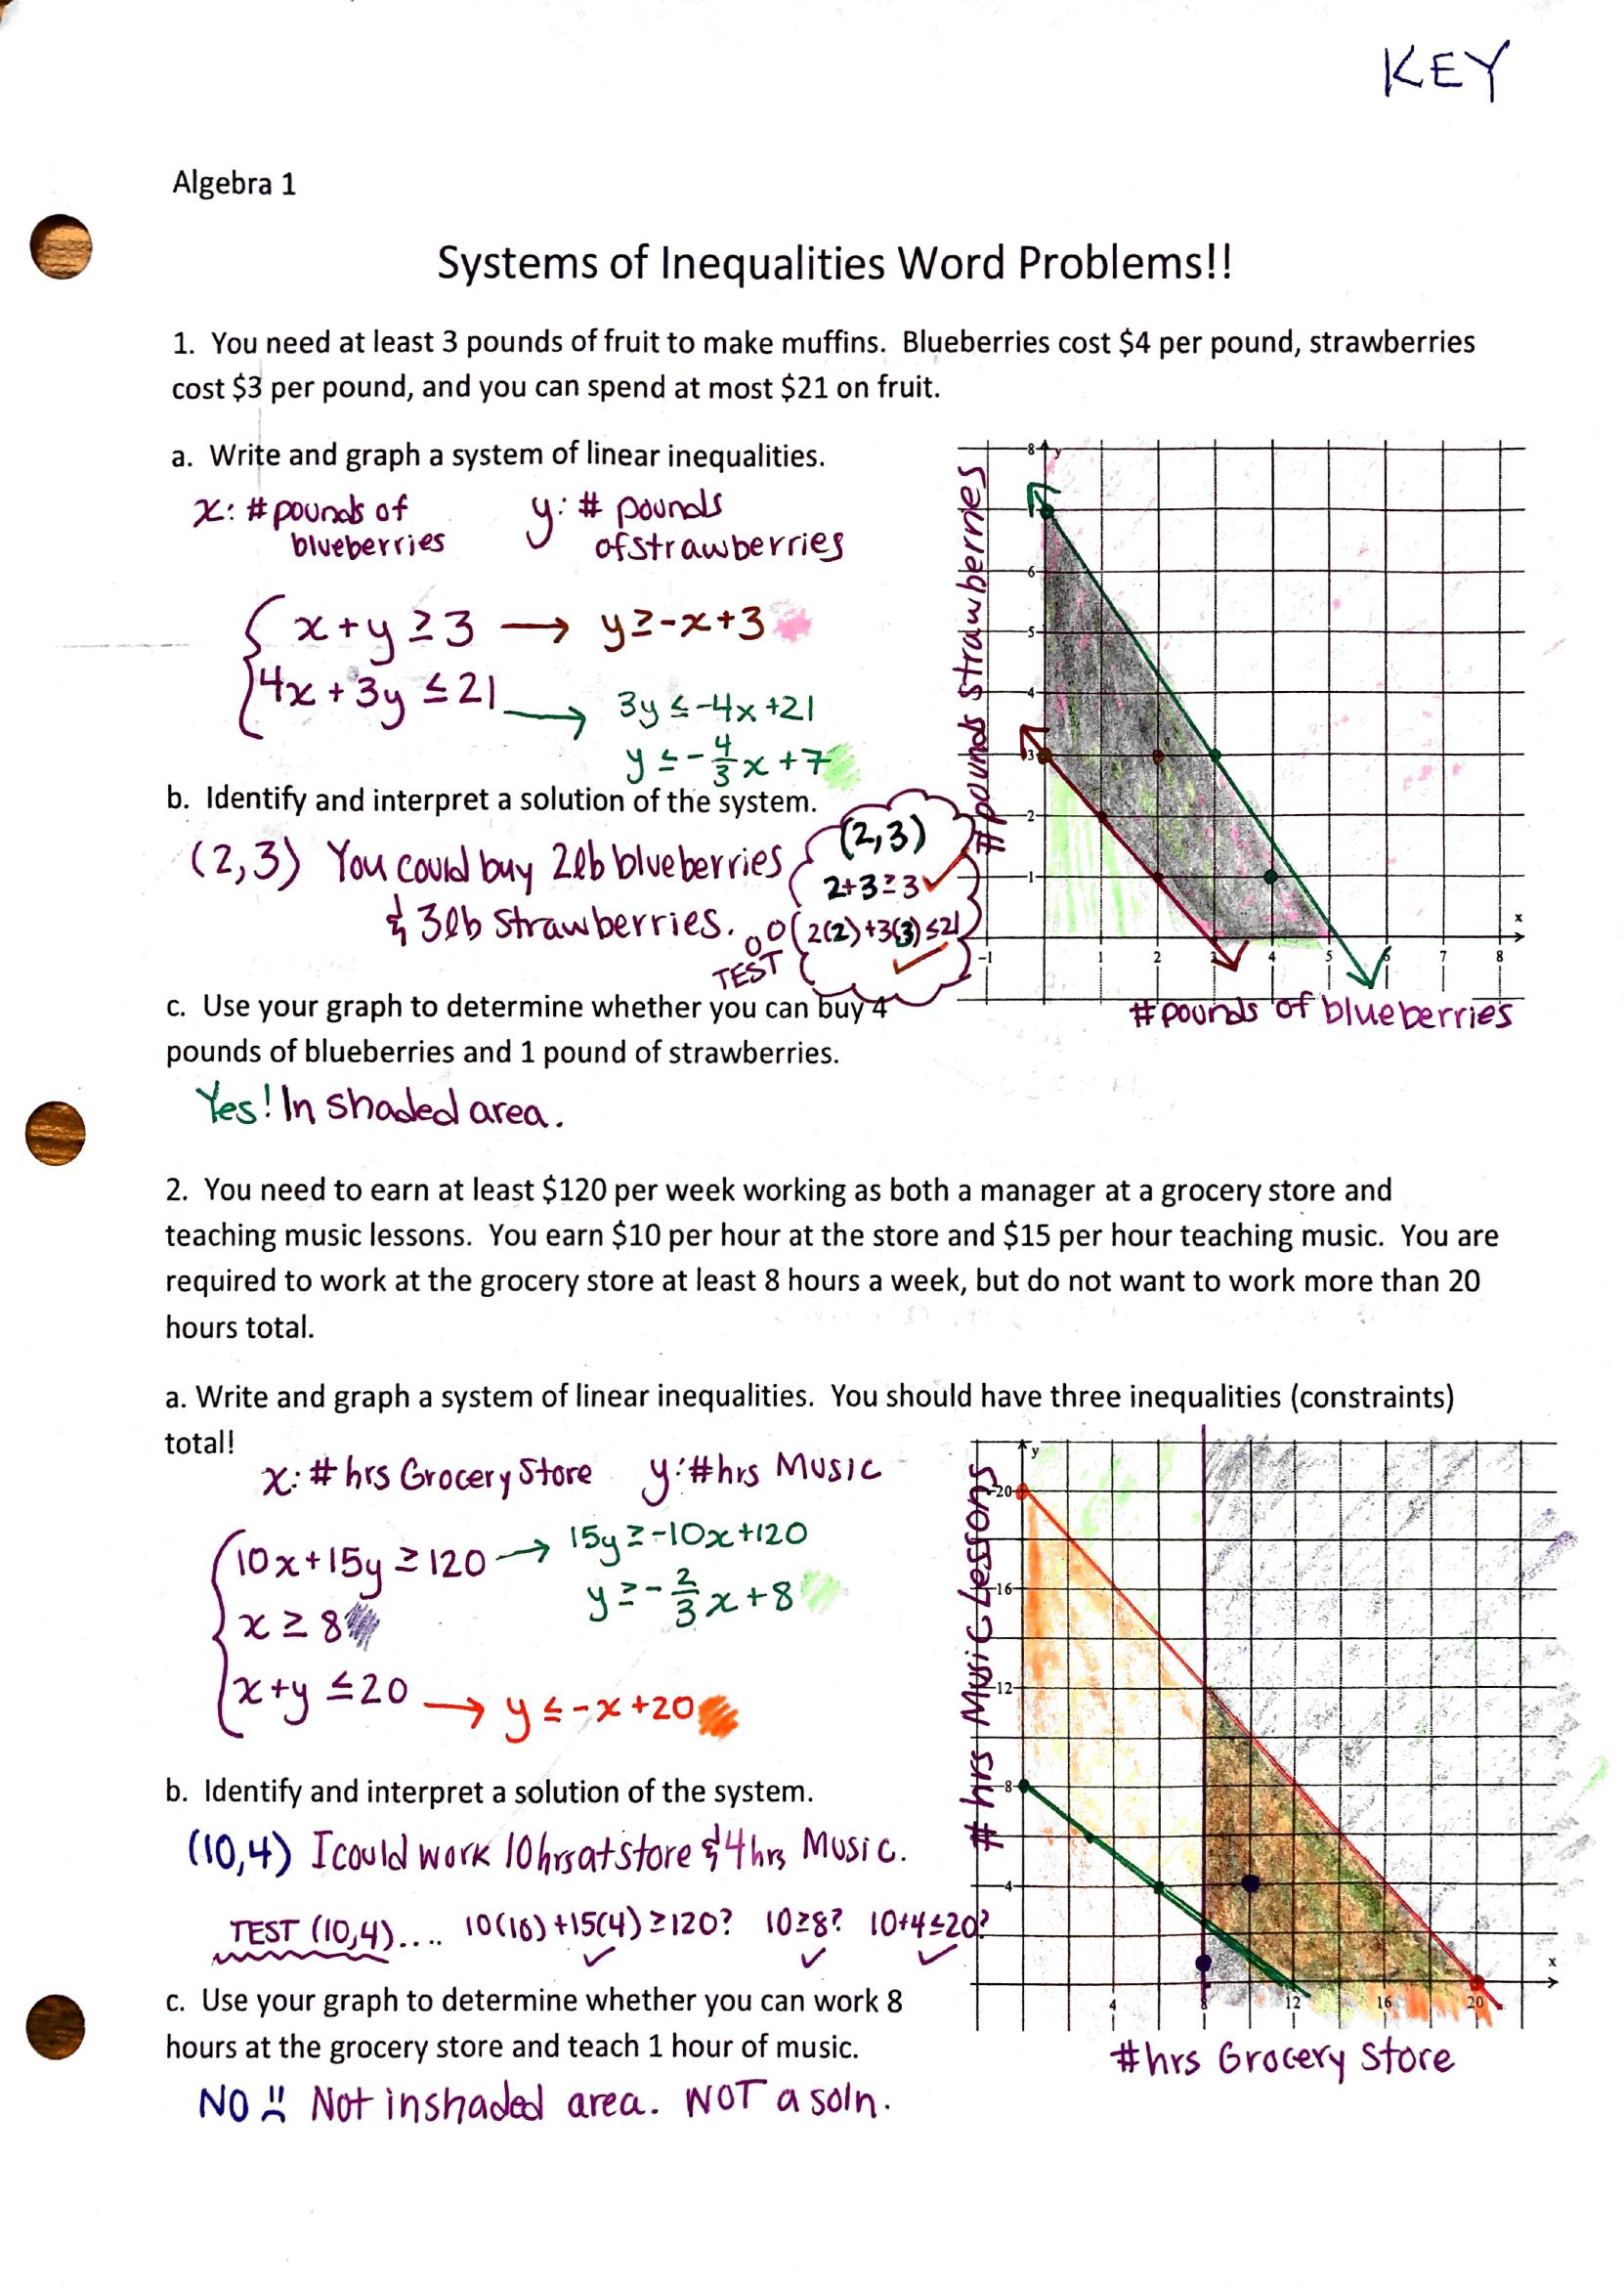 KEY
Algebra 1
Systems of Inequalities Word Problems!!
1. You need at least 3 pounds of fruit to make muffins. Blueberries cost $4 per pound, strawberries
cost $3 per pound, and you can spend at most $21 on fruit.
a. Write and graph a system of linear inequalities.
x: # pounds of blueberries
y: # pounds of strawberries
x + y ≥ 3 → y ≥ -x + 3
4x + 3y ≤ 21 → 3y ≤ -4x + 21
y ≤ -4/3 x + 7
# pounds strawberries
8 y
6
5
4
3
2
1
-1 1 2 3 4 5 6 7 8 x
# pounds of blueberries
b. Identify and interpret a solution of the system.
(2,3) You could buy 2lb blueberries
& 3lb strawberries.
TEST
(2,3)
2+3≥3 ✓
2(2)+3(3)≤21
✓
c. Use your graph to determine whether you can buy 4
pounds of blueberries and 1 pound of strawberries.
Yes! In shaded area.
2. You need to earn at least $120 per week working as both a manager at a grocery store and
teaching music lessons. You earn $10 per hour at the store and $15 per hour teaching music. You are
required to work at the grocery store at least 8 hours a week, but do not want to work more than 20
hours total.
a. Write and graph a system of linear inequalities. You should have three inequalities (constraints)
total!
x: # hrs Grocery Store y: # hrs Music
10x + 15y ≥ 120 → 15y ≥ -10x + 120
y ≥ -2/3 x + 8
x ≥ 8
x + y ≤ 20 → y ≤ -x + 20
# hrs Music Lessons
y
20
16
12
8
4
4 8 12 16 20 x
# hrs Grocery Store
b. Identify and interpret a solution of the system.
(10,4) I could work 10hrs at store & 4 hrs Music.
TEST (10,4).... 10(10)+15(4)≥120? 10≥8? 10+4≤20?
✓ ✓ ✓
c. Use your graph to determine whether you can work 8
hours at the grocery store and teach 1 hour of music.
NO Not in shaded area. NOT a soln.